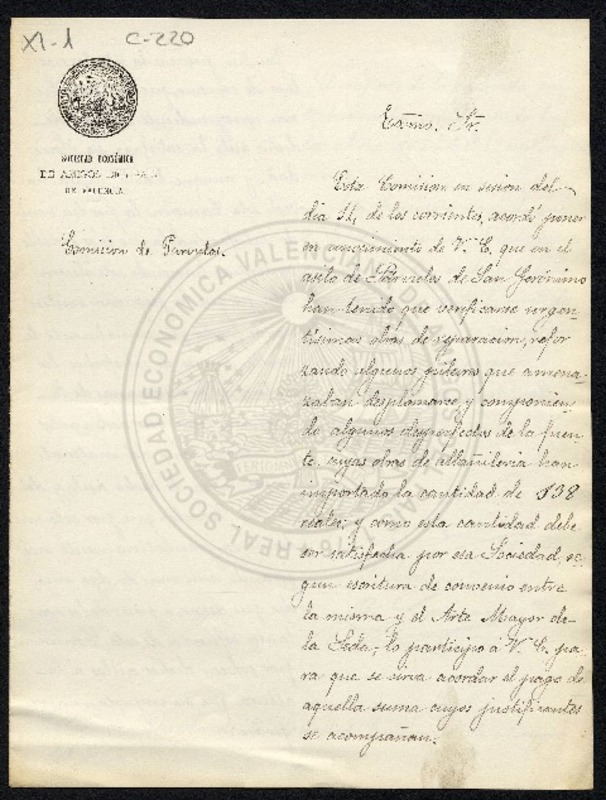 XI-1 C-220
SOCIEDAD ECONÓMICA
DE AMIGOS DEL PAÍS
DE VALENCIA
Comision de Párvulos.
Excmo. Sr.
Esta Comision en sesion del
dia 11, de los corrientes, acordó poner
en conocimiento de V. E. que en el
asilo de Párvulos de San Gerónimo
han tenido que verificarse urgen-
tísimas obras de reparacion, refor
zando algunos pilares que amena-
zaban desplomarse, y componien-
do algunos desperfectos de la fuen-
te, cuyas obras de albañileria han
importado la cantidad de 138
reales; y como esta cantidad debe
ser satisfecha por esa Sociedad, se-
gun escritura de convenio entre
la misma y el Arte Mayor de
la Seda, lo participo á V. E. pa-
ra que se sirva acordar el pago de
aquella suma cuyos justificantes
se acompañan.
REAL SOCIEDAD ECONOMICA VALENCIANA DE AMIGOS DEL PAIS